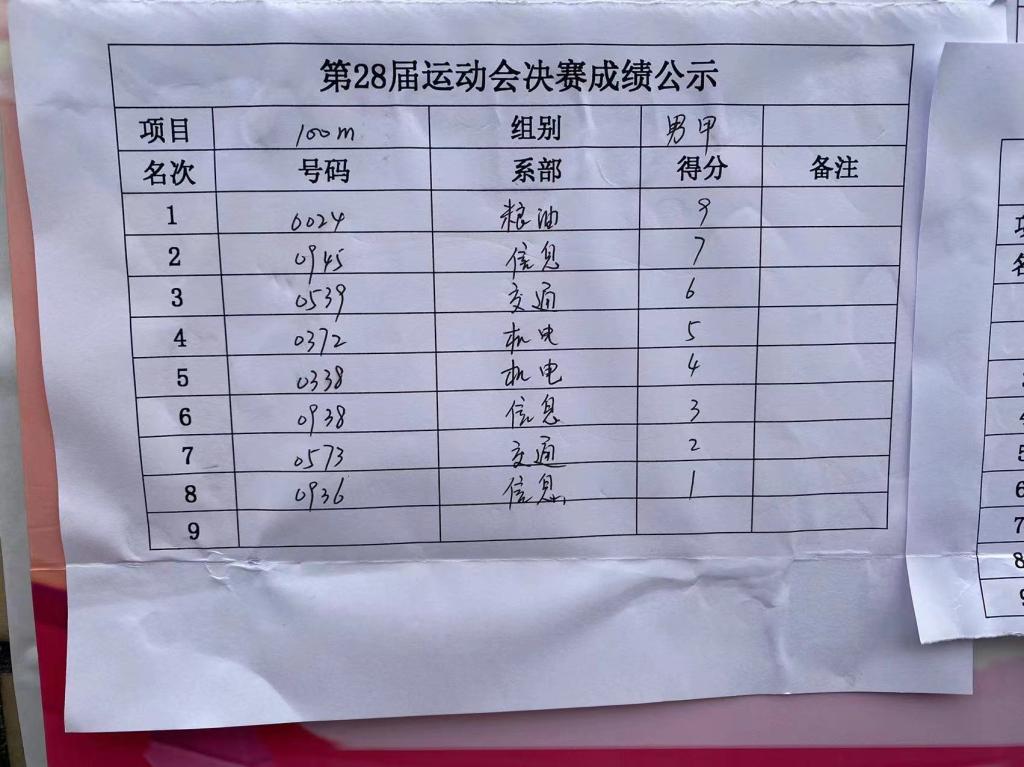 第28届运动会决赛成绩公示
项目 100m 组别 男甲
名次 号码 系部 得分 备注
1 0024 粮油 9
2 0945 信息 7
3 0539 交通 6
4 0372 机电 5
5 0338 机电 4
6 0938 信息 3
7 0573 交通 2
8 0936 信息 1
9
4
5
6
7
8